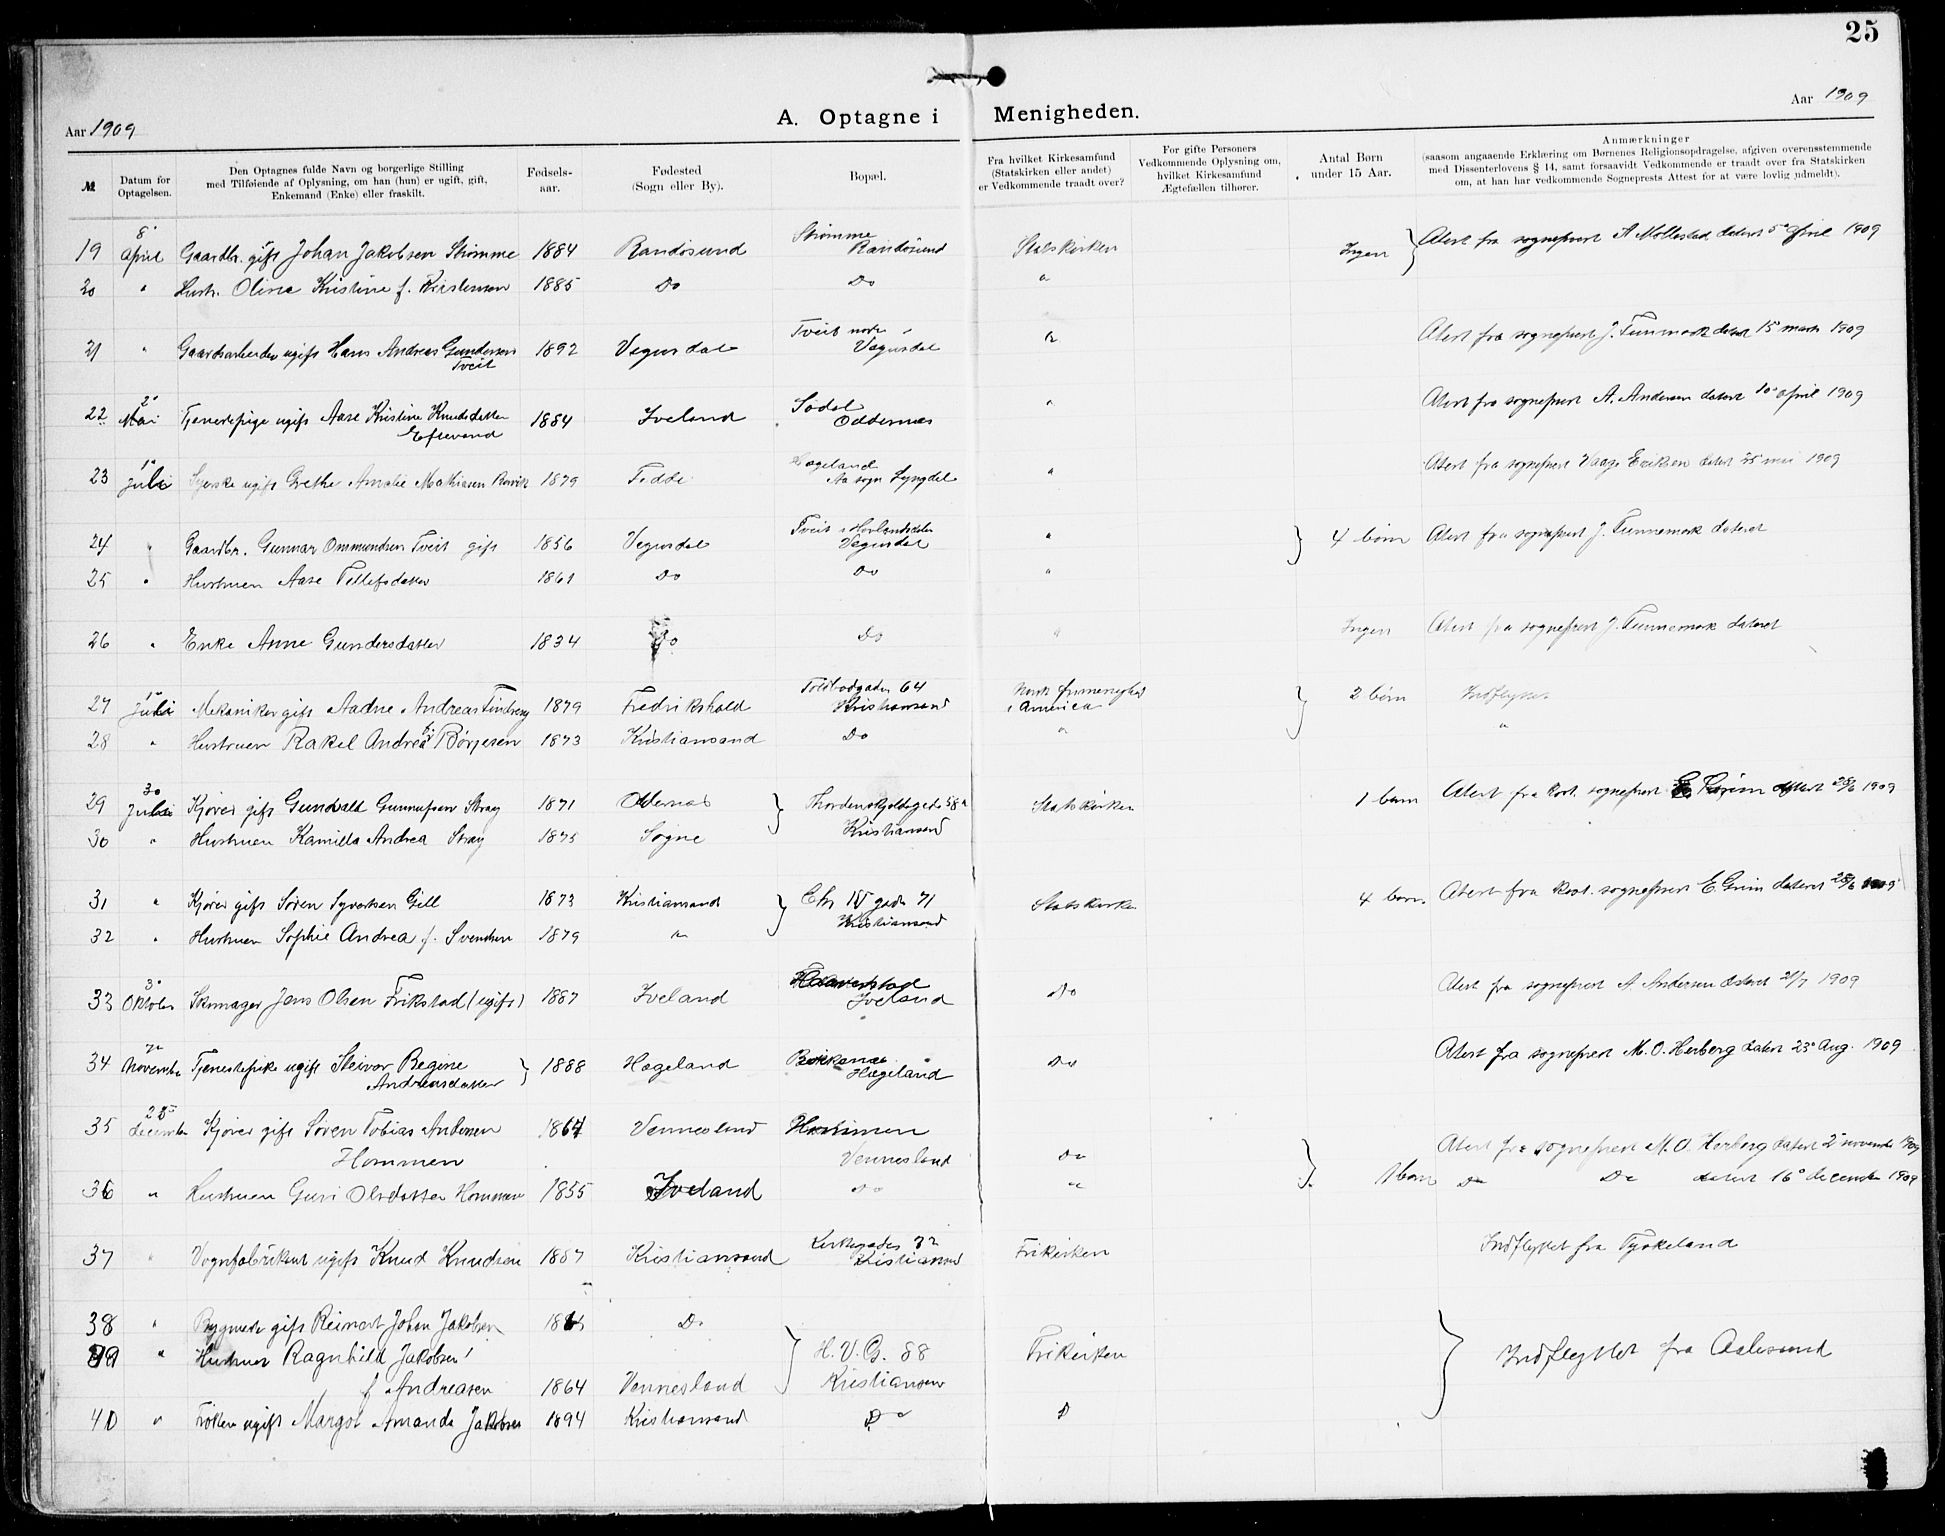 25
Aar 1909
A. Optagne i Menigheden.
Aar 1909
№
Datum for Optagelsen.
Den Optagnes fulde Navn og borgerlige Stilling
med Tilføiende af Oplysning, om han (hun) er ugift, gift,
Enkemand (Enke) eller fraskilt.
Fødsels-
aar.
Fødested
(Sogn eller By).
Bopæl.
Fra hvilket Kirkesamfund
(Statskirken eller andet)
er Vedkommende traadt over?
For gifte Personers
Vedkommende Oplysning om,
hvilket Kirkesamfund
Ægtefællen tilhører.
Antal Børn
under 15 Aar.
Anmærkninger
(saasom angaaende Erklæring om Børnenes Religionsopdragelse, afgiven overensstemmende
med Dissenterlovens § 14, samt forsaavidt Vedkommende er traadt over fra Statskirken
om, at han har vedkommende Sogneprests Attest for at være lovlig udmeldt).
19 8' April Gaardbr. gift Johan Jakobsen Strømme 1884 Randøsund Strømme Randøsund Statskirken Ingen Atest fra sogneprest A Mollestad datert 5' April 1909
20 " Hustr. Oline Kristine f. 1885 Do Do "
21 " Gaardsarbeider ugift Hans Andreas Gundersen Tveit 1892 Vegusdal Tveit Vegusdal " Atest fra sogneprest J. Tunnemark datert 15 marts 1909
22 2' Mai Tjenestepige ugift Aase Kristine Knudsdatter Eftevand 1884 Iveland Sødal Oddernæs " Atest fra sogneprest A. Andersen datert 10' april 1909
23 1' Juli Syerske ugift Grethe Amalie Mathiasen 1879 Fedde Hægeland Aa sogn Lyngdal " Atest fra sogneprest Vaage Eriksen datert 25 mai 1909
24 " Gaardbr. Gunnar Ommundsen Tveit gift 1856 Vegusdal Tveit i Hovlandsdalen Vegusdal " 4 børn Atest fra sogneprest J. Tunnemark dateret
25 " Hustruen Aase Tellefsdatter 1861 Do Do "
26 " Enke Anne Gundersdatter 1834 Do Do " Ingen Atest fra sogneprest J. Tunnemark dateret
27 1' Juli Mekaniker gift Aadne Andreas 1879 Fredrikshald Toldbodgaden 64 Kristiansand Norsk frimenighed i America 2 børn Indflyttet
28 " Hustruen Rakel Andrea f. Børjesen 1873 Kristiansand Do " "
29 30 Juli Kjører gift Gundvald Gunnufsen Stray 1871 Odernes Thordenskjoldsgade 58a Statskirken 1 barn Atest fra Rest. sogneprest E. Grim datert 28/6 1909
30 " Hustruen Kamilla Andrea Stray 1875 Søgne Kristiansand
31 " Kjører gift Søren Syvertsen Gill 1873 Kristiansand Chr IV gade 71 Statskirke 4 børn. Atest fra Rest. sogneprest E. Grim datert 28/6 1909
32 " Hustruen Sophie Andrea f. Svendsen 1879 " Kristiansand
33 3' Oktober Skomager Jens Olsen Frikstad (ugift) 1887 Iveland Iveland Do Atest fra sogneprest A Andersen dateret 21/7 1909
34 November Tjenestepike ugift Steivor Regine Andreasdatter 1888 Hægeland Hægeland Do Atest fra sogneprest M. O. Herberg datert 23' Aug. 1909
35 28 december Kjører gift Søren Tobias Andersen Hommen 1864 Vennesland Hommen Vennesland Do Atest fra sogneprest M. O. Herberg datert 2' november 1909
36 " Hustruen Guri Olsdatter Hommen 1855 Iveland Do " 1 barn Do Do datert 16' december 1909
37 " Vognfabrikant ugift Knud Knudsen 1887 Kristiansand Kirkegaden 32 Kristiansand Frikirken Indflyttet fra Tyskeland
38 " Bygmester gift Reinert Johan Jakobsen Do
39 " Hustruen Ragnhild Jakobsen f Andreasen 1864 Vennesland H. V. G. 88 Kristiansand Frikirken Indflyttet fra Aalesund
40 " Frøken ugift Margot Amanda Jakobsen 1894 Kristiansand Do D